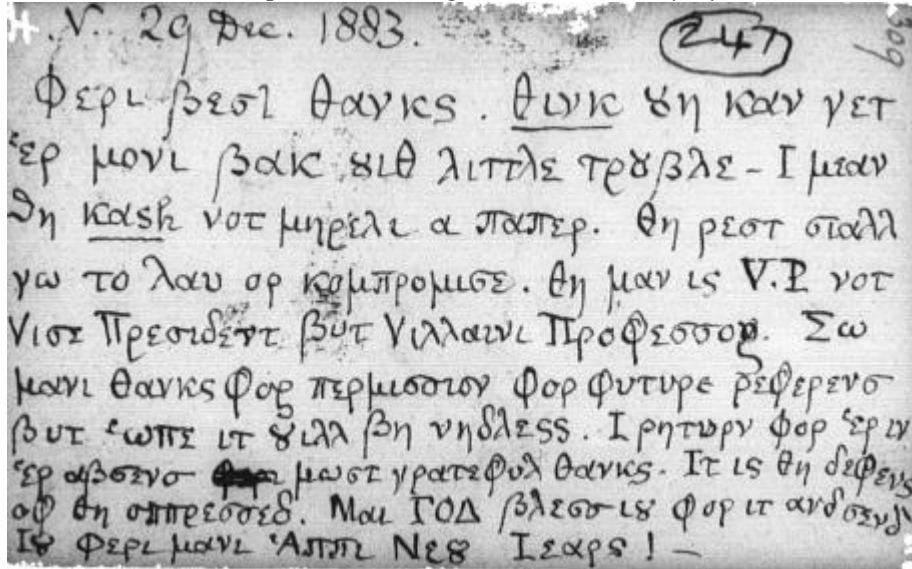 H.N. 29 Dec. 1883. 247 309
Φερι βεστ θανκς. θινκ ȣη καν γετ
ἑρ μονι βακ ȣιθ λιττλε τρȣβλε - I μεαν
θη καsh νοτ μηρελι α παπερ. θη ρεστ σιαλλ
γω το λαυ ορ κομπρομισε. θη μαν ις V.P. νοτ
Vισε Πρεσιδεντ βυτ Vιλλαινι Προφεσσορ. Σω
μανι θανκς φορ περμισσιον φορ φυτυρε ρεφερενσ
βυτ ἑωπε ιτ ȣιλλ βη νηδλεςς. I ρητυρν φορ ἑρ ιν
ἑρ αβσενσ μωστ γρατεφυλ θανκς. Ιτ ις θη δεφενς
οφ θη οππρεσσεδ. Μαι ΓΟΔ βλεσσ ιȣ φορ ιτ ανδ σενδ
Ιȣ φερι μανι Ἁππι Νεȣ Ιεαρς ! -